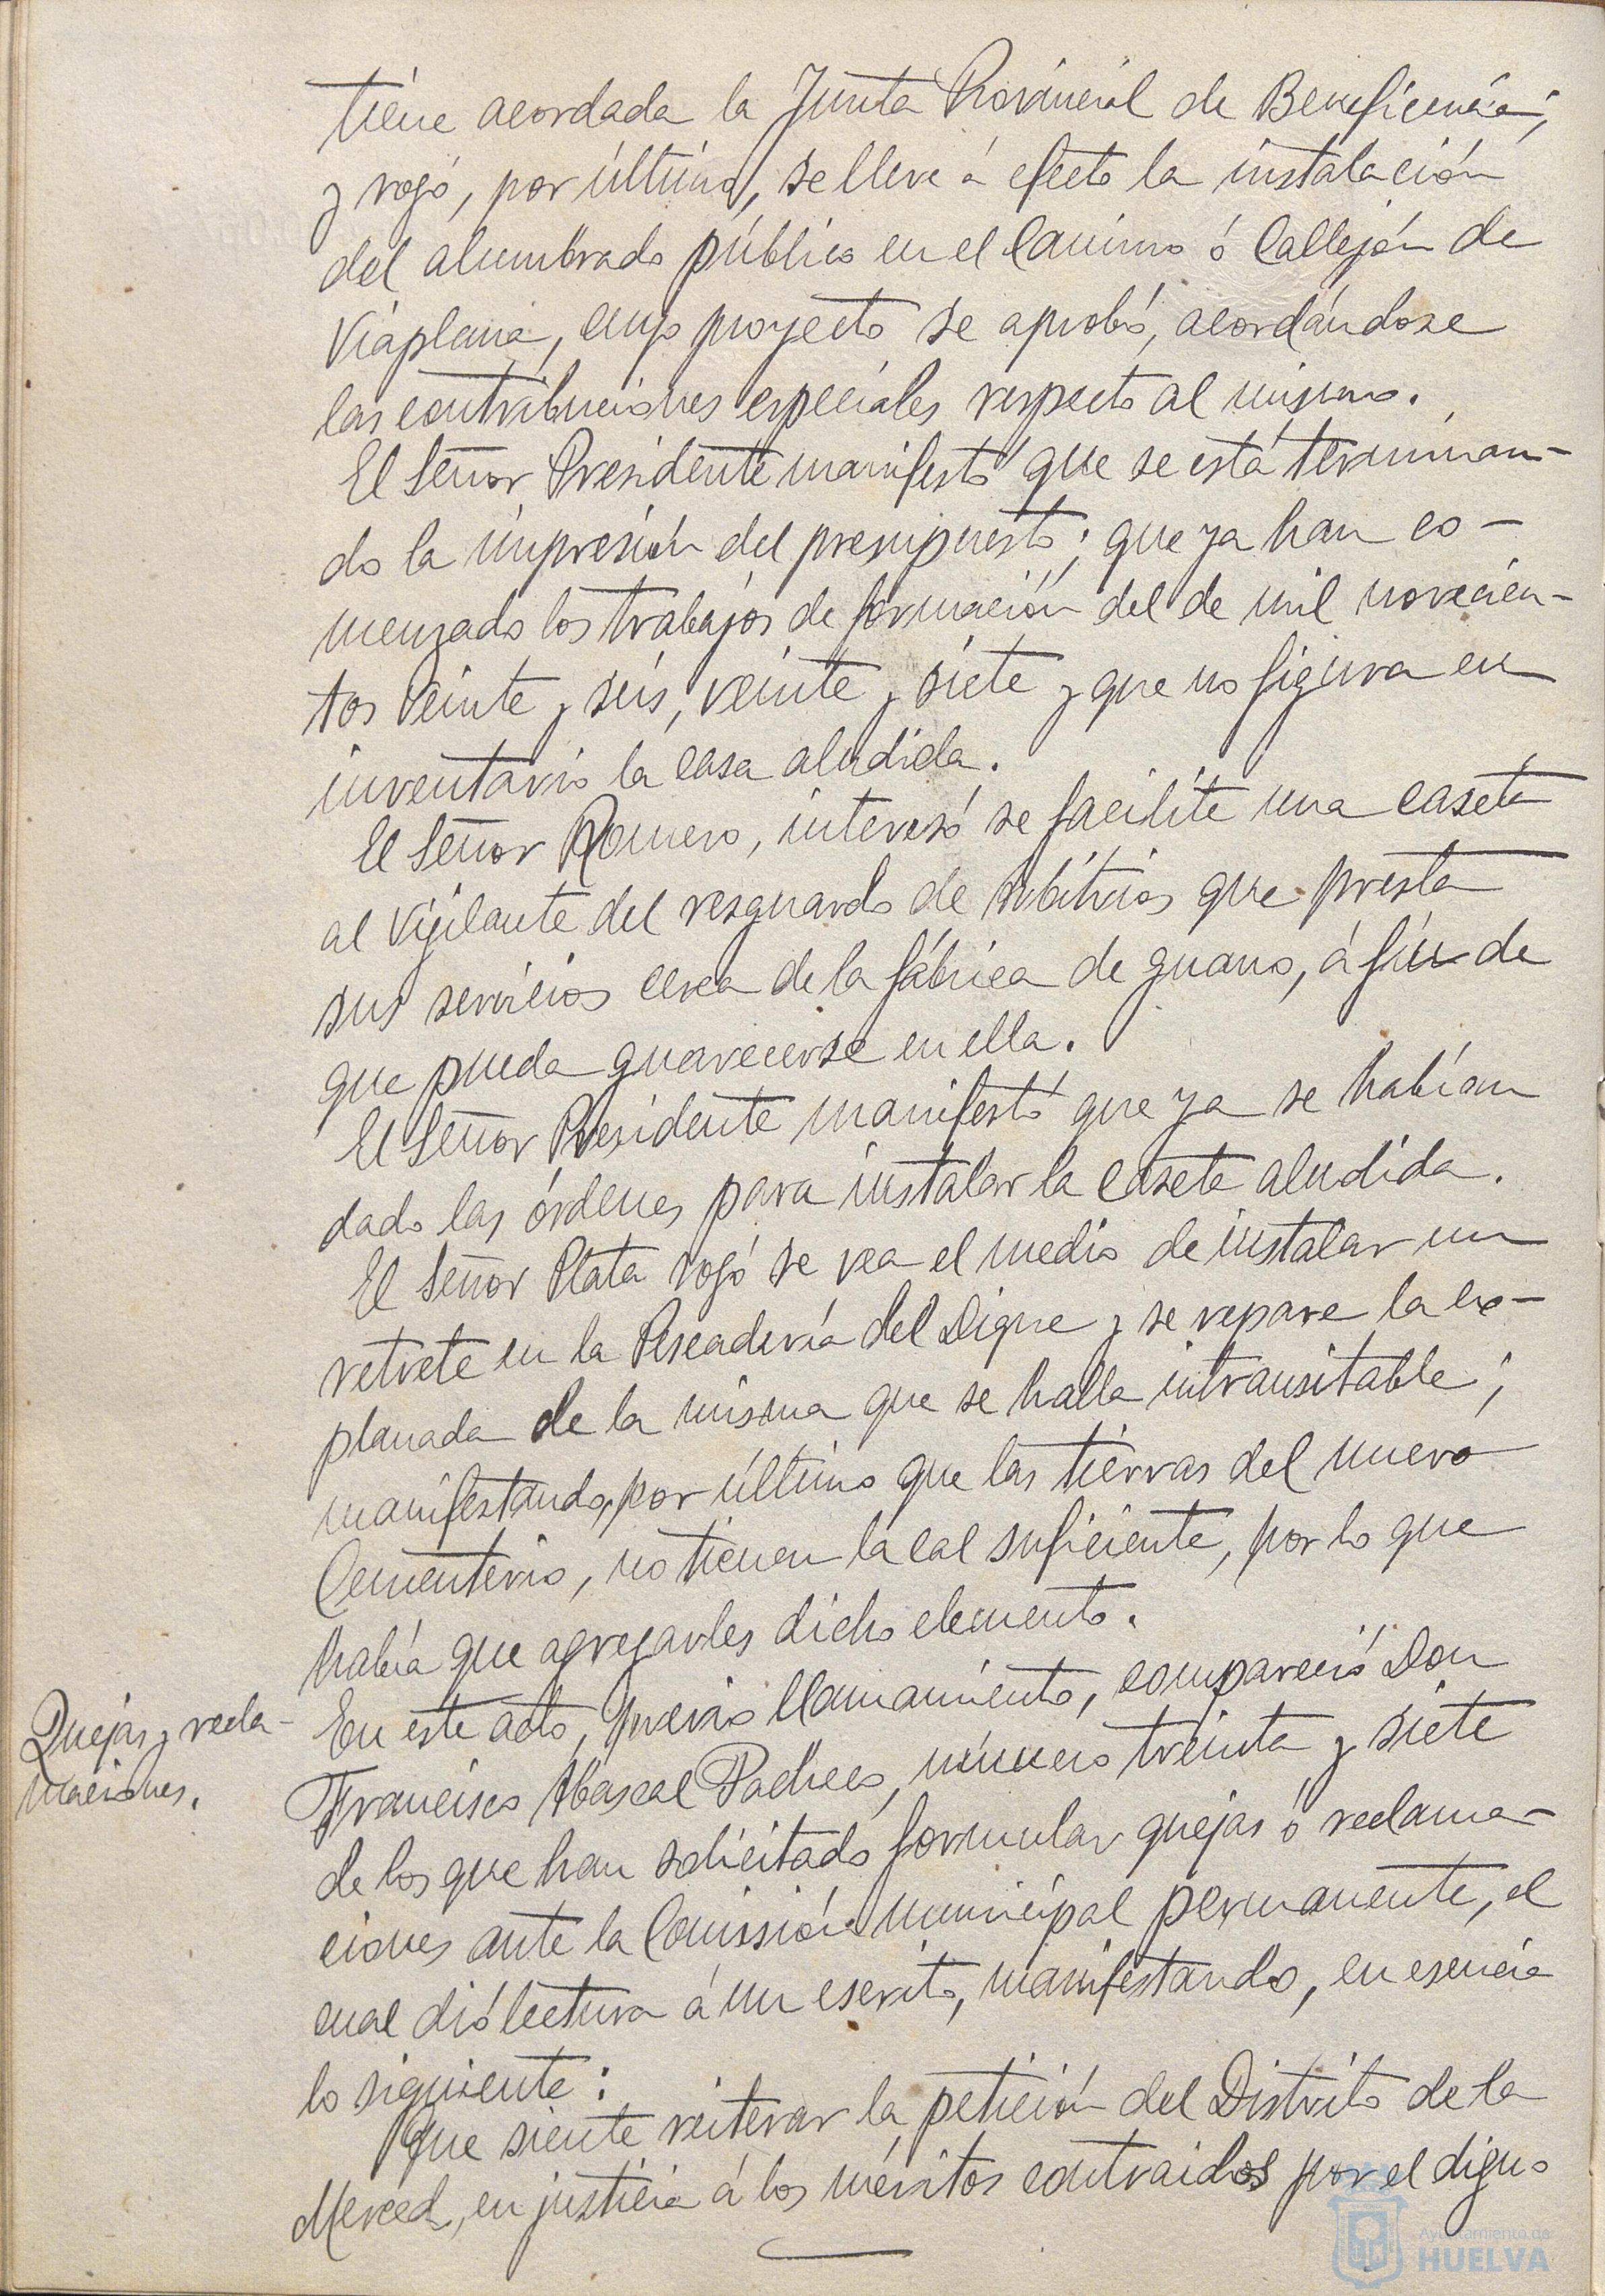 tiene acordada la Junta Provincial de Beneficencia;
y rogó, por último, se lleve á efecto la instalación
del alumbrado público en el Camino ó Callejón de
Viaplana, cuyo proyecto se aprobó, acordándose
las contribuciones especiales respecto al mismo.
El Señor Presidente manifestó que se está terminan-
do la impresión del presupuesto; que ya han co-
menzado los trabajos de formación del de mil novecien-
tos veinte y seis, veinte y siete y que no figura en
inventario la casa aludida.
El Señor Romero, interesó se facilite una caseta
al vigilante del resguardo de arbitrios que presta
sus servicios cerca de la fábrica de guano, á fin de
que pueda guarecerse en ella.
El Señor Presidente manifestó que ya se habían
dado las órdenes para instalar la caseta aludida.
El Señor Plata rogó se vea el medio de instalar un
retrete en la Pescadería del Dique y se repare la ex-
planada de la misma que se halla intransitable;
manifestando, por último que las tierras del nuevo
Cementerio, no tienen la cal suficiente, por lo que
había que agregarles dicho elemento.
Quejas y recla-
maciones.
En este acto, previo llamamiento, compareció Don
Francisco Abascal Pacheco, número treinta y siete
de los que han solicitado formular quejas ó reclama-
ciones ante la Comisión municipal permanente, el
cual dió lectura á un escrito, manifestando, en esencia
lo siguiente:
Que siente reiterar la petición del Distrito de la
Merced, en justicia á los méritos contraidos por el digno
Ayuntamiento de
HUELVA